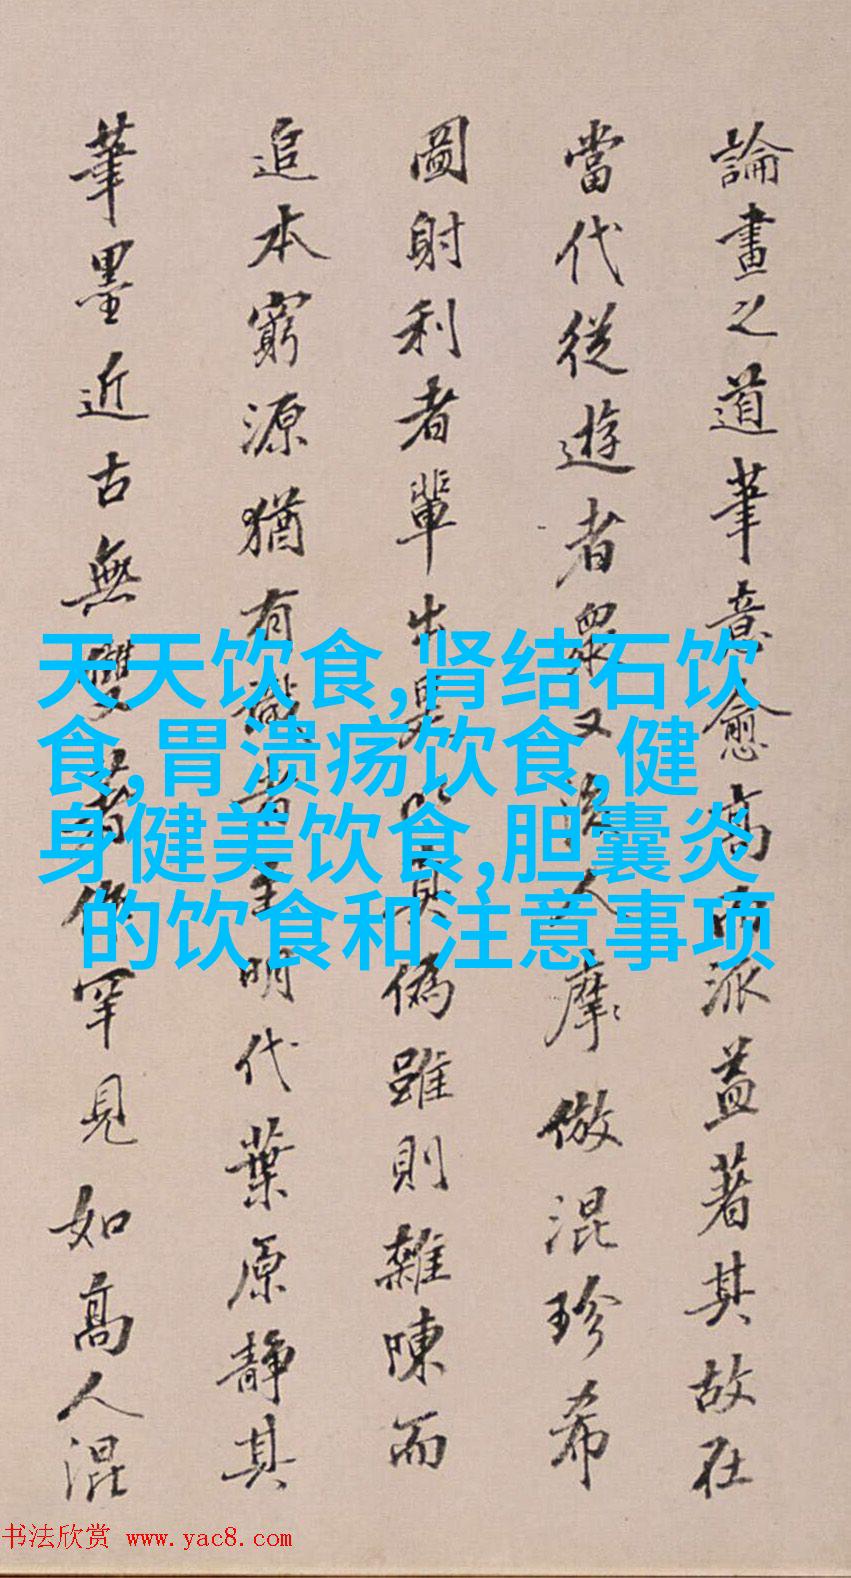 論畫之道筆意愈高而派益著其故在
當代從遊者眾又後人摩倣混珍希
圖射利者輩出真偽雖則雜陳而
追本窮源猶有識者主明代葉原靜其
筆墨近古無雙著作罕見如高人混
天天饮食,肾结石饮
食,胃溃疡饮食,健
身健美饮食,胆囊炎
的饮食和注意事项
书法欣赏 www.yac8.com